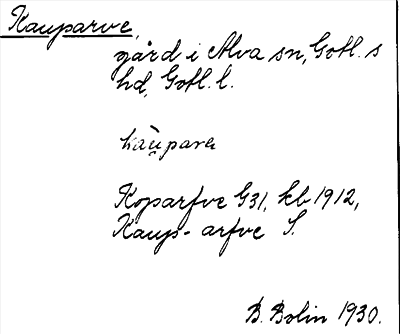 Kauparve,
gård i Alva sn, Gotl. s
hd, Gotl. l.
kaù̯parvα
Koparfve G31, kb 1912,
Kaup-arfve S.
B. Bolin 1930.